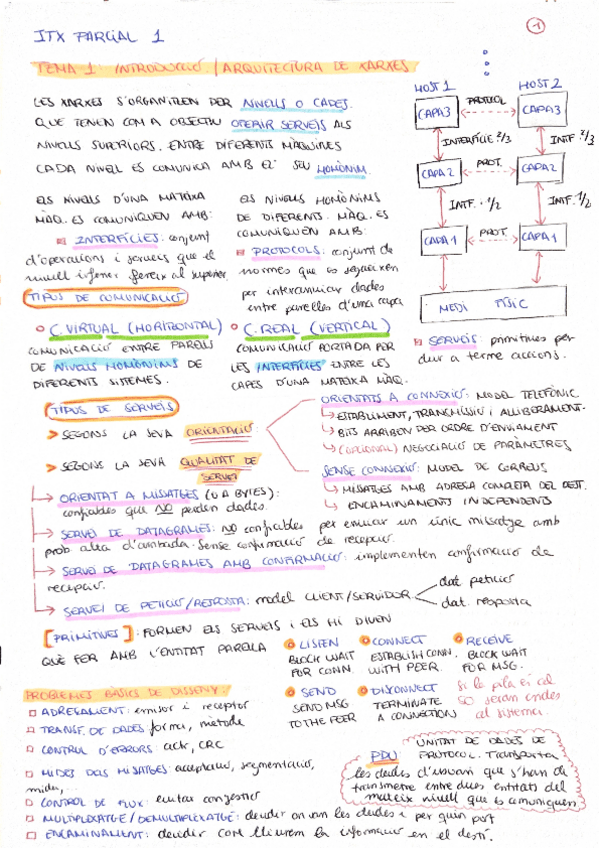 ITX PARCIAL 1
1
TEMA 1: INTRODUCCIÓ / ARQUITECTURA DE XARXES
LES XARXES S'ORGANITZEN PER NIVELLS O CAPES.
QUE TENEN COM A OBJECTIU OFERIR SERVEIS ALS
NIVELLS SUPERIORS. ENTRE DIFERENTS MÀQUINES
CADA NIVELL ES COMUNICA AMB EL SEU HOMÒNIM.
HOST 1
HOST 2
CAPA 3
PROTOCOL
CAPA 3
INTERFÍCIE 2/3
INTF 2/3
CAPA 2
PROT.
CAPA 2
INTF. 1/2
INTF. 1/2
CAPA 1
PROT
CAPA 1
MEDI FÍSIC
ELS NIVELLS D'UNA MATEIXA
MÀQ. ES COMUNIQUEN AMB:
INTERFÍCIES: conjunt
d'operacions i serveis que el
nivell inferior ofereix al superior.
ELS NIVELLS HOMÒNIMS
DE DIFERENTS MÀQ. ES
COMUNIQUEN AMB:
PROTOCOLS: conjunt de
normes que es segueixen
per intercanviar dades
entre parelles d'una capa
SERVEIS: primitives per
dur a terme accions.
TIPUS DE COMUNICACIÓ
C. VIRTUAL (HORITZONTAL)
COMUNICACIÓ ENTRE PARELLS
DE NIVELLS HOMÒNIMS DE
DIFERENTS SISTEMES.
C. REAL (VERTICAL)
COMUNICACIÓ PORTADA PER
LES INTERFÍCIES ENTRE LES
CAPES D'UNA MATEIXA MÀQ.
TIPUS DE SERVEIS
> SEGONS LA SEVA ORIENTACIÓ:
> SEGONS LA SEVA QUALITAT DE
SERVEI
ORIENTATS A CONNEXIÓ: MODEL TELEFÒNIC
ESTABLIMENT, TRANSMISSIÓ I ALLIBERAMENT.
BITS ARRIBEN PER ORDRE D'ENVIAMENT
(OPCIONAL) NEGOCIACIÓ DE PARÀMETRES
SENSE CONNEXIÓ: MODEL DE CORREUS
MISSATGES AMB ADREÇA COMPLETA DEL DEST.
ENCAMINAMENTS INDEPENDENTS
ORIENTAT A MISSATGES (O A BYTES):
confiables que NO perden dades.
SERVEI DE DATAGRAMES: NO confiables per enviar un únic missatge amb
prob alta d'arribada. Sense confirmació de recepció.
SERVEI DE DATAGRAMES AMB CONFIRMACIÓ: implementen confirmació de
recepció.
SERVEI DE PETICIÓ/RESPOSTA: model CLIENT/SERVIDOR
dat. petició
dat. resposta
[PRIMITIVES]: FORMEN ELS SERVEIS I ELS HI DIUEN
QUÈ FER AMB L'ENTITAT PARELLA
LISTEN
BLOCK WAIT
FOR CONN.
CONNECT
ESTABLISH CONN.
WITH PEER.
RECEIVE
BLOCK WAIT
FOR MSG.
SEND
SEND MSG
TO THE PEER
DISCONNECT
TERMINATE
A CONNECTION
Si la pila és al
SO seran crides
al sistema.
PROBLEMES BÀSICS DE DISSENY:
ADREÇAMENT: emisor i receptor
TRANSF. DE DADES: forma, mètode
CONTROL D'ERRORS: ack, CRC
MIDES DELS MISSATGES: acceptació, segmentació,
mida,...
CONTROL DE FLUX: evitar congestió
MULTIPLEXATGE/DEMULTIPLEXATGE: decidir on van les dades i per quin port
ENCAMINAMENT: decidir COM lliurem la informació en el destí.
PDU
UNITAT DE DADES DE
PROTOCOL. Transporta
les dades d'usuari que s'han de
transmetre entre dues entitats del
mateix nivell que es comuniquen